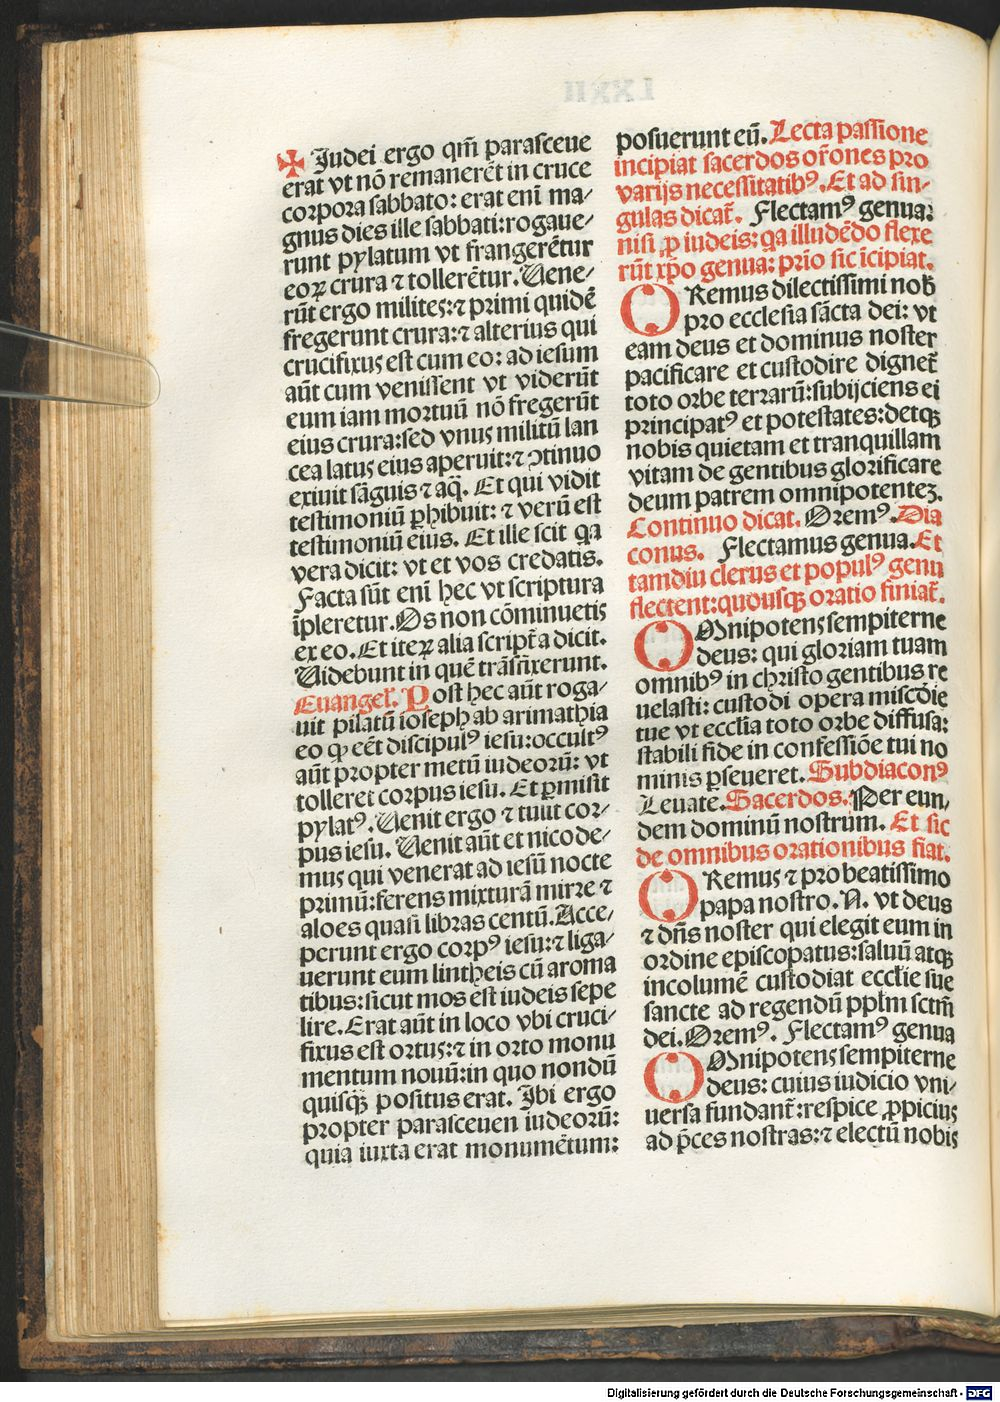 ✠ Iudei ergo qm̄ parasceue
erat vt nō remanerēt in cruce
corpora sabbato: erat eni̅ ma-
gnus dies ille sabbati: rogaue-
runt pylatum vt frangerētur
eoꝝ crura ⁊ tollerētur. Uene-
rūt ergo milites: ⁊ primi quidē
fregerunt crura: ⁊ alterius qui
crucifixus est cum eo: ad iesum
aūt cum venissent vt viderūt
eum iam mortuū nō fregerūt
eius crura: sed vnus militū lan
cea latus eius aperuit: ⁊ ↄtinuo
exiuit sāguis ⁊ aq̄. Et qui vidit
testimoniū ꝑhibuit: ⁊ verū est
testimoniū eius. Et ille scit qꝛ
vera dicit: vt et vos credatis.
Facta sūt eni̅ hec vt scriptura
īpleretur. Os non cōminuetis
ex eo. Et iteꝝ alia script̄a dicit.
Videbunt in quē trāsfixerunt.
Euangel̄. Post hec aūt roga-
uit pilatū ioseph ab arimathia
eo ꝙ eēt discipulꝰ iesu: occultꝰ
aūt propter metū iudeorū: vt
tolleret corpus iesu. Et ꝑmisit
pylatꝰ. Uenit ergo ⁊ tulit cor-
pus iesu. Uenit aūt et nicode-
mus qui venerat ad iesū nocte
primū: ferens mixturā mirre ⁊
aloes quasi libras centū. Acce-
perunt ergo corpꝰ iesu: ⁊ liga-
uerunt eum lintheis cū aroma
tibus: sicut mos est iudeis sepe
lire. Erat aūt in loco vbi cruci-
fixus est ortus: ⁊ in orto monu
mentum nouū: in quo nondū
quisqꝫ positus erat. Ibi ergo
propter parasceuen iudeorū:
quia iuxta erat monumētum:
posuerunt eū. Lecta passione
incipiat sacerdos or̄ones pro
varijs necessitatibꝰ. Et ad sin-
gulas dicat̄. Flectamꝰ genua:
nisi ꝓ iudeis: qꝛ illudēdo flexe
rūt xp̄o genua: prīo sic īcipiat.
Oremus dilectissimi nob̄
pro ecclesia sācta dei: vt
eam deus et dominus noster
pacificare et custodire dignet̄
toto orbe terrarū: subijciens ei
principatꝰ et potestates: detqꝫ
nobis quietam et tranquillam
vitam de gentibus glorificare
deum patrem omnipotentez.
Continuo dicat. Oremꝰ. Dia
conus. Flectamus genua. Et
tamdiu clerus et populꝰ genu
flectent: quousqꝫ oratio finiat̄.
Omnipotens sempiterne
deus: qui gloriam tuam
omnibꝰ in christo gentibus re
uelasti: custodi opera misc̄dīe
tue vt ecclīa toto orbe diffusa:
stabili fide in confessiōe tui no
minis ꝑseueret. Subdiaconꝰ
Leuate. Sacerdos. Per eun-
dem dominū nostrum. Et sic
de omnibus orationibus fiat.
Oremus ⁊ pro beatissimo
papa nostro. N. vt deus
⁊ dn̄s noster qui elegit eum in
ordine episcopatus: saluū atqꝫ
incolumē custodiat ecclīe sue
sancte ad regendū pplm̄ sctm̄
dei. Oremꝰ. Flectamꝰ genua
Omnipotens sempiterne
deus: cuius iudicio vni-
uersa fundant̄: respice ꝓpicius
ad p̄ces nostras: ⁊ electū nobis
Digitalisierung gefördert durch die Deutsche Forschungsgemeinschaft - DFG